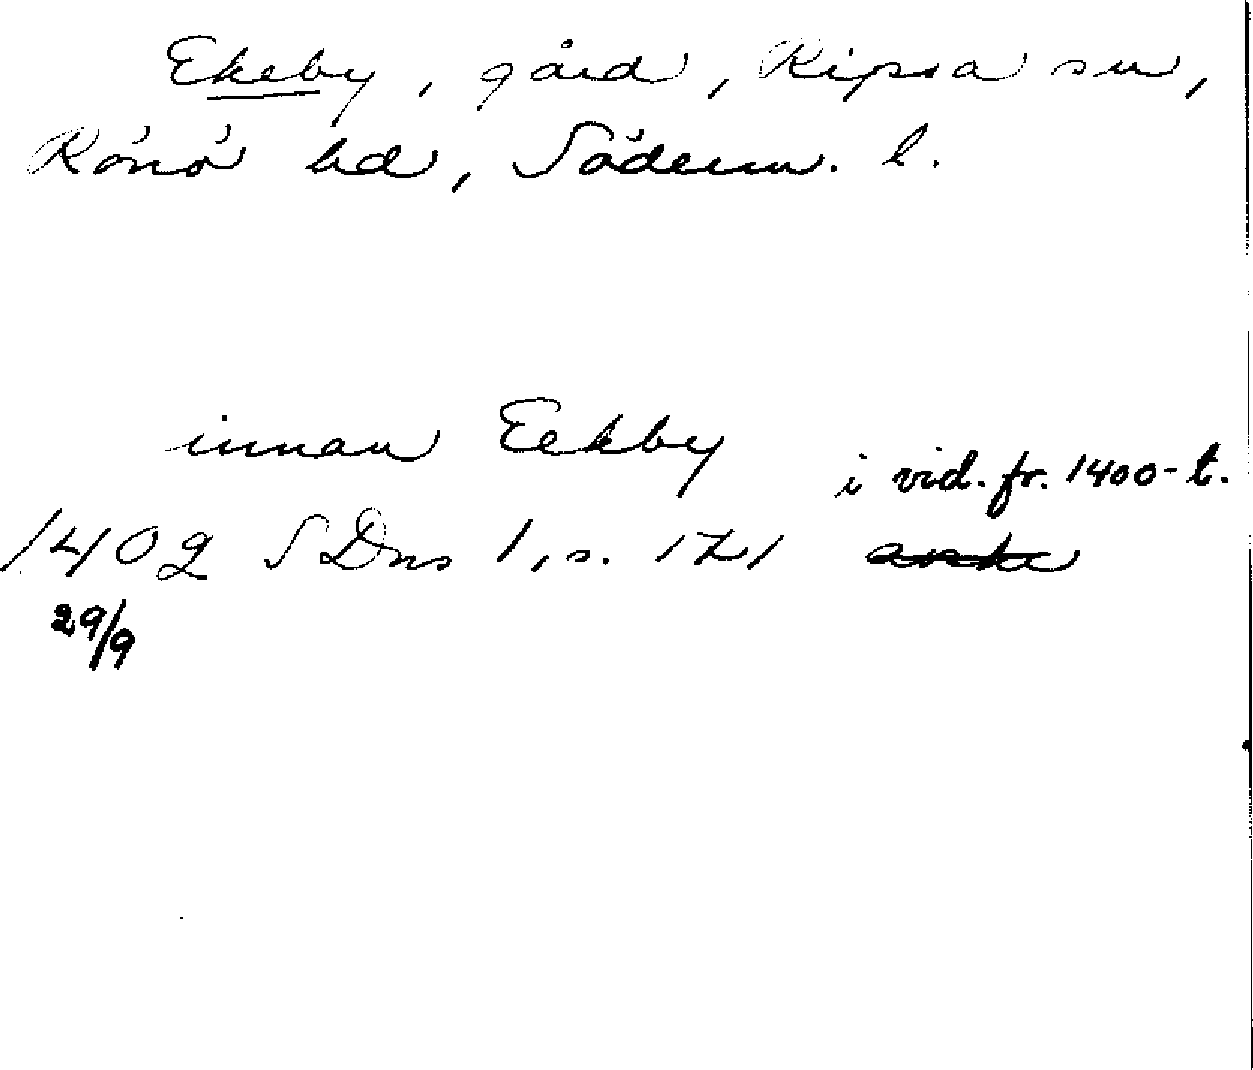 Ekeby, gård, Ripsa sn,
Rönö hd, Söderm. l.
innan Eekby
i vid. fr. 1400-t.
1402 SDns 1, s. 121
29/9